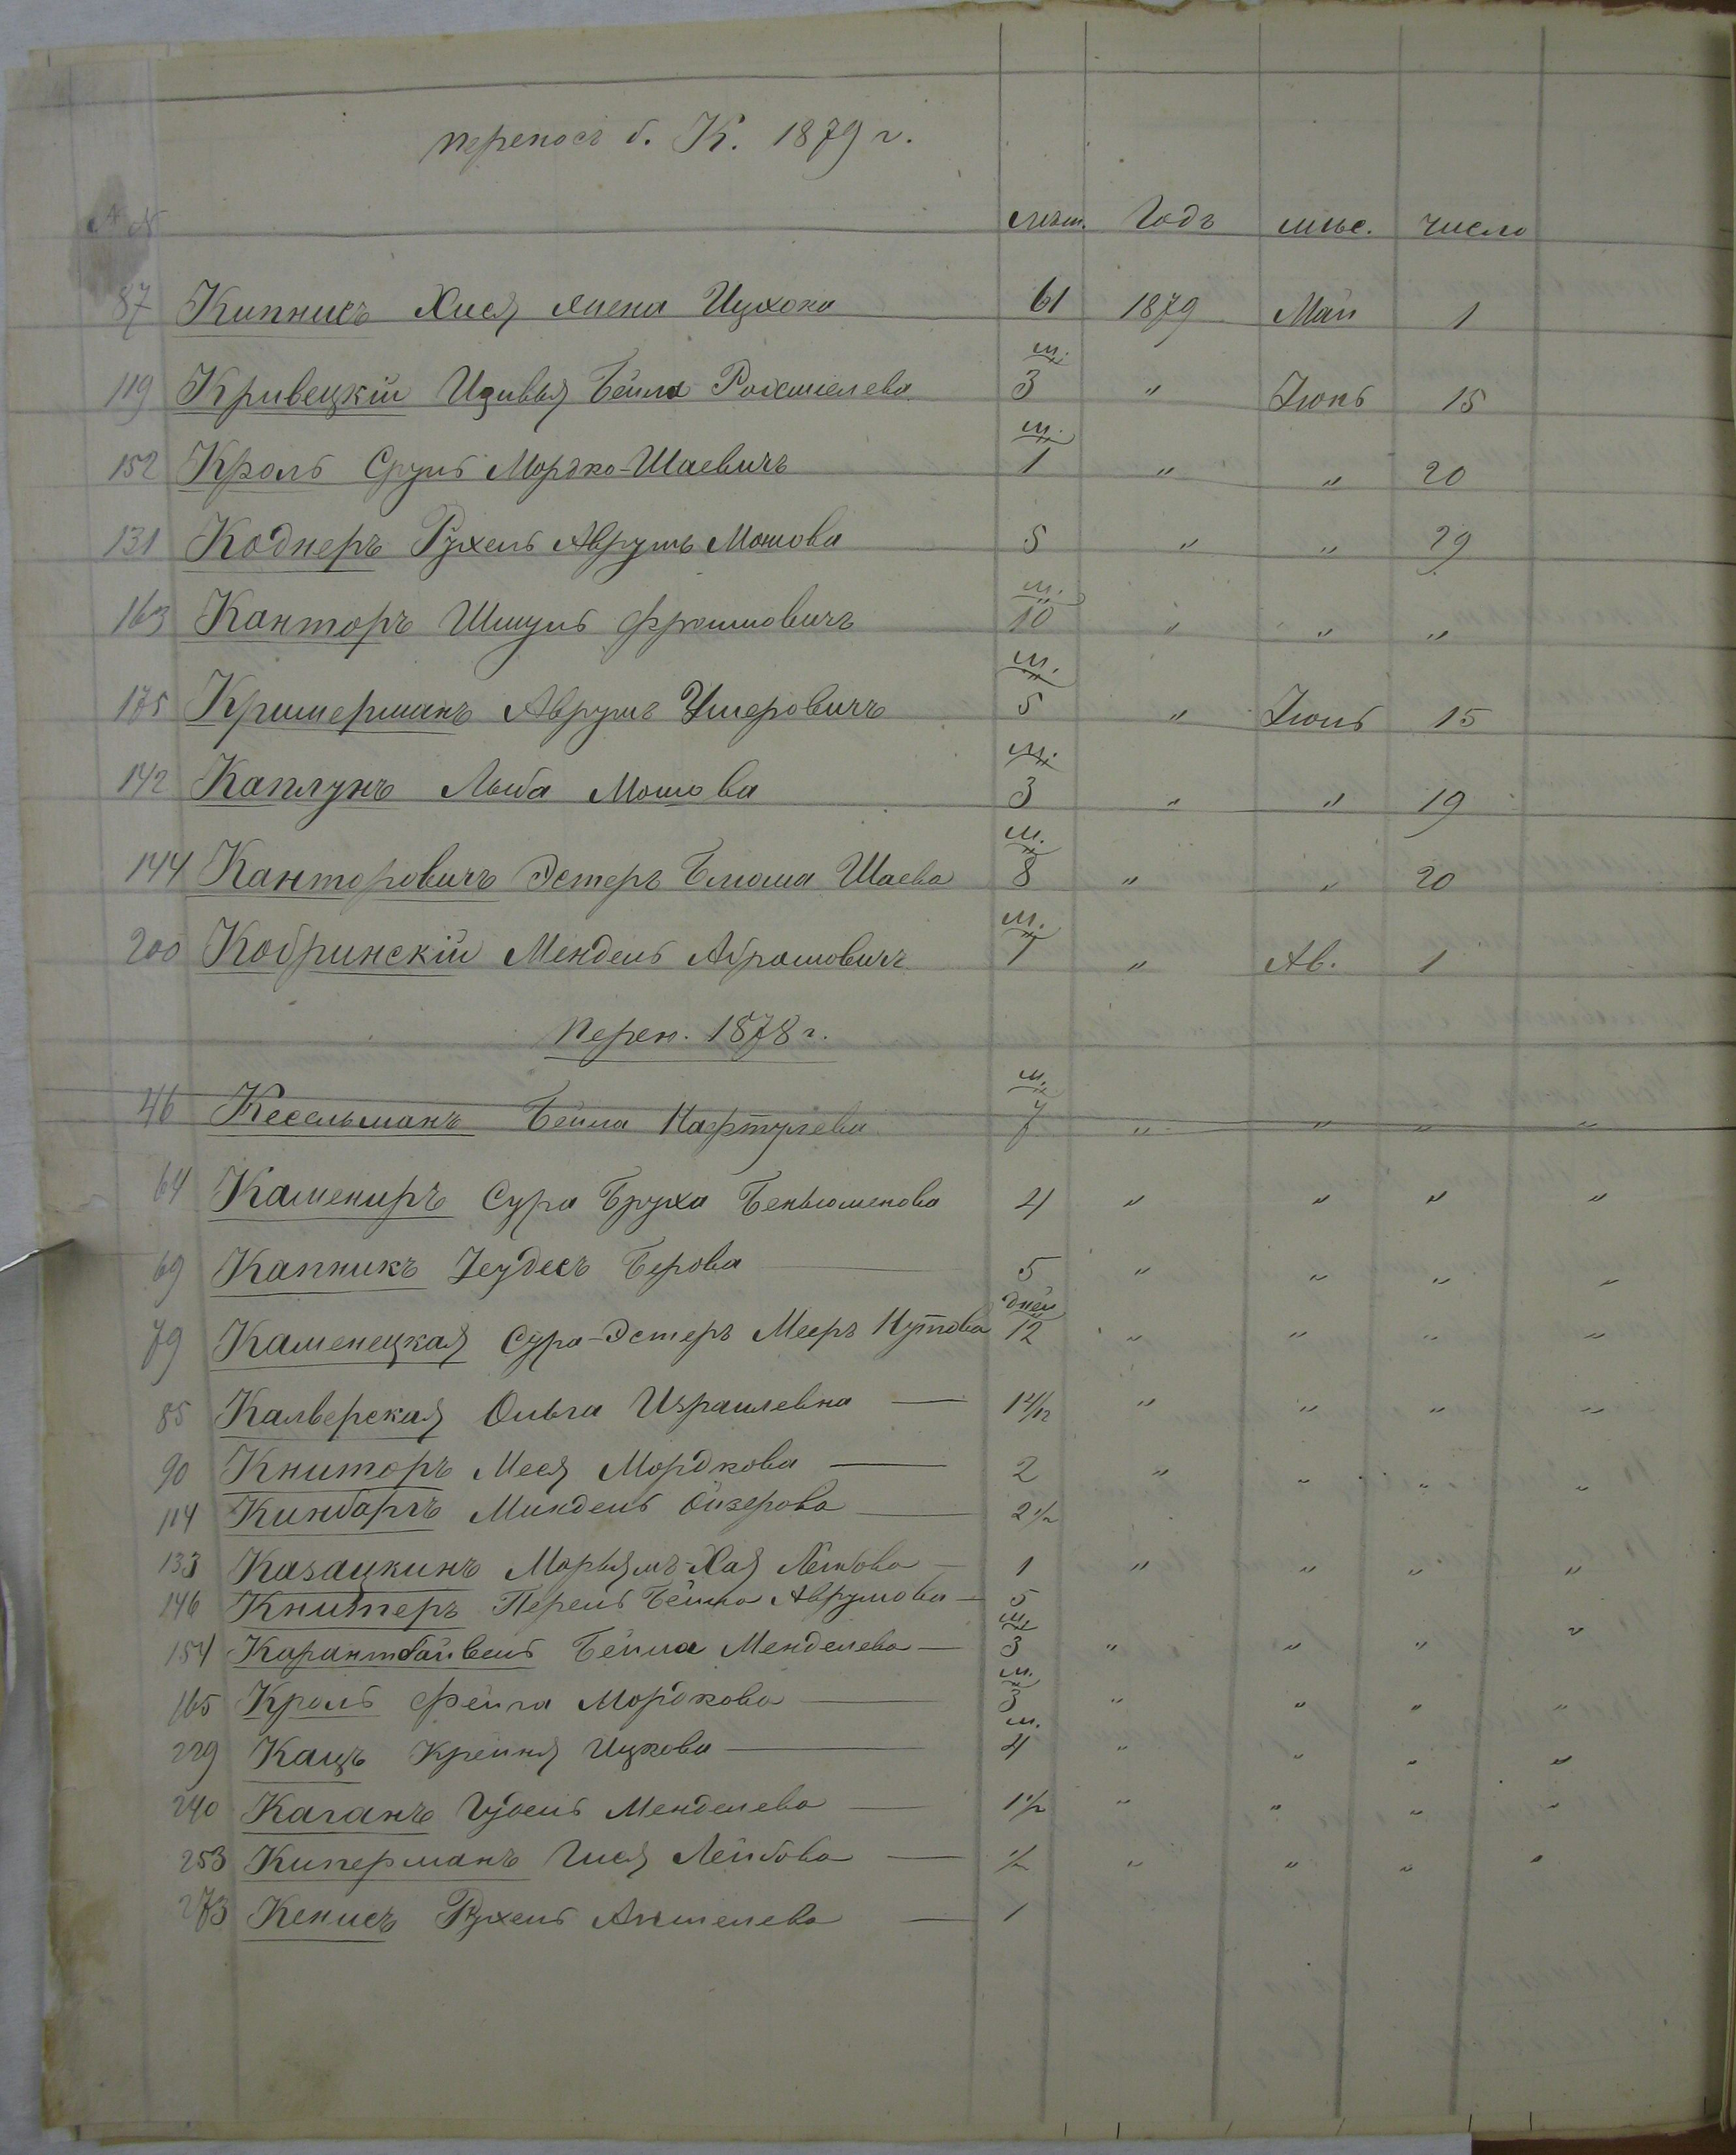 переносъ б. К. 1879 г.
№№ лѣт. Годъ мѣс. число
87 Кипнисъ Хися жена Ицхока 61 1879 Май 1
119 Кривецкій Цивья Бейла Рахмелева м. 3 " Іюнь 15
152 Кроль Сруль Мордко-Шаевичъ м. 1 " " 20
131 Коднеръ Рухель Аврумъ Мошова 5 " " 29
163 Канторъ Шмуль Фроимовичъ м. 10 " " "
175 Кримерманъ Аврумъ Умеровичъ м. 5 " Іюль 15
142 Каплунъ Лыба Мошова м. 3 " " 19
144 Канторовичъ Эстеръ Блюма Шаева м. 8 " " 20
200 Кобринскій Мендель Абрамовичъ м. 7 " Ав. 1
перен. 1878 г.
46 Кесельманъ Бейла Нафтулева м. 7 " " " "
64 Камениръ Сура Бруха Беньюменова 4 " " " "
69 Капникъ Іеудесъ Берова 5 " " " "
79 Каменецкая Сура-Эстеръ Мееръ Нутова дней 12 " " " "
85 Калверская Ольга Израилевна — 1 4/12 " " " "
90 Книторъ Меся Мордкова — 2 " " " "
114 Кинбаргъ Миндель Ойзерова — 2 1/2
133 Казацкинъ Марьямъ-Хая Лейбова — 1 " " " "
146 Книтеръ Перель Бейла Аврумова — 5
154 Карантбайвель Бейла Менделева — м. 3 " " " "
165 Кроль Фейга Мордкова — м. 3 " " " "
229 Кацъ Крейня Ицкова — м. 4 " " " "
240 Каганъ Гудель Менделева — 1 1/2 " " " "
253 Киперманъ Гися Лейбова — 1/2 " " " "
273 Кенисъ Рухель Аншелева — 1